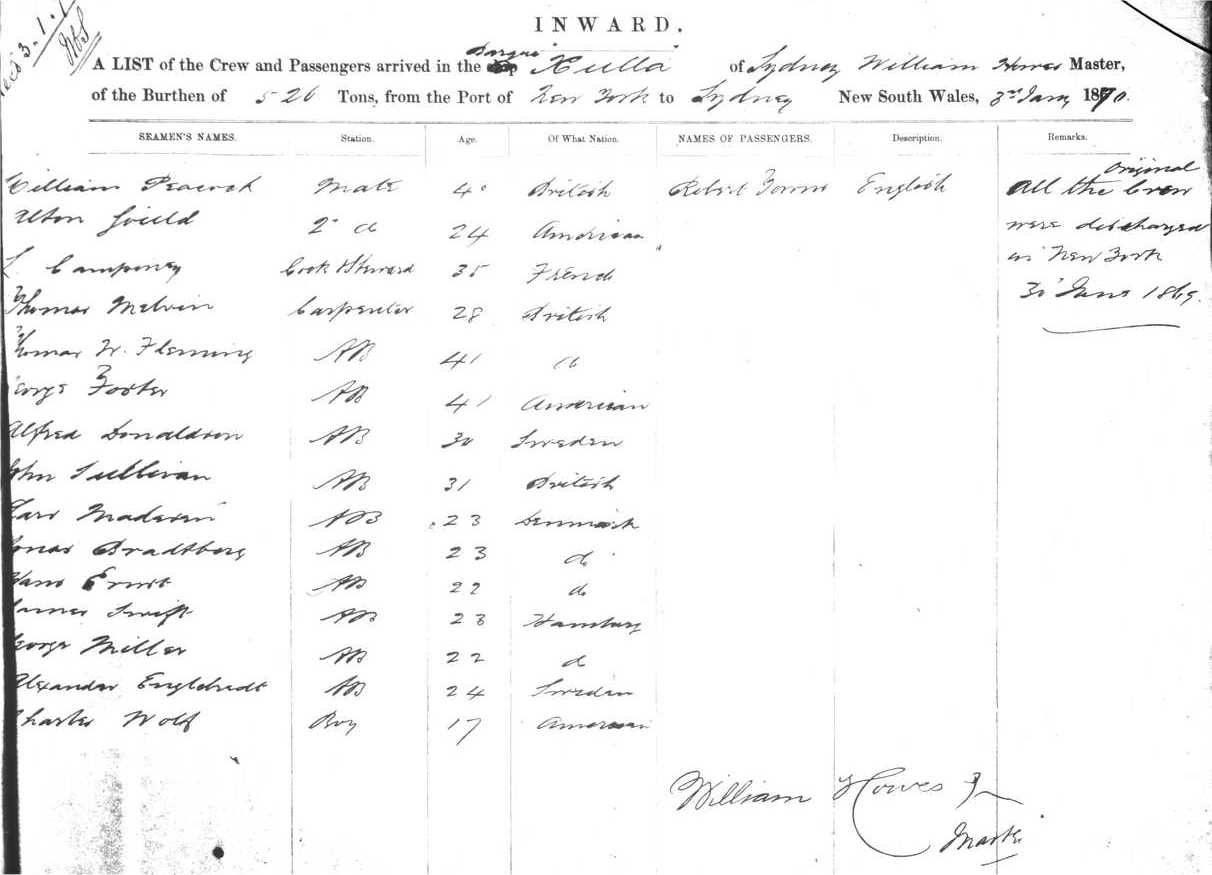 Recd 3.1.
INWARD.
Barque
A LIST of the Crew and Passengers arrived in the Ship Xulla of Sydney William Howes Master,
of the Burthen of 526 Tons, from the Port of New York to Sydney New South Wales, 3rd Jany 1870.
SEAMEN'S NAMES. Station. Age. Of What Nation. NAMES OF PASSENGERS. Description. Remarks.
William Peacock Mate 40 British Robert English Original
All the Crew
Gould 2 d 24 American were discharged
Cook & Steward 35 French in New York
Thomas Melvin Carpenter 28 British 30 1869.
Thomas W. Fleming AB 41 d
George Foster AB 41 American
Alfred Donaldson AB 30 Sweden
John Sullivan AB 31 British
Madsen AB 23 Denmark
Bradtberg AB 23 do
Hans Ernst AB 22 do
James Swift AB 23 Hamburg
George Miller AB 22 d
Alexander AB 24 Sweden
Charles Wolf Boy 17 American
William Howes Jr
Master